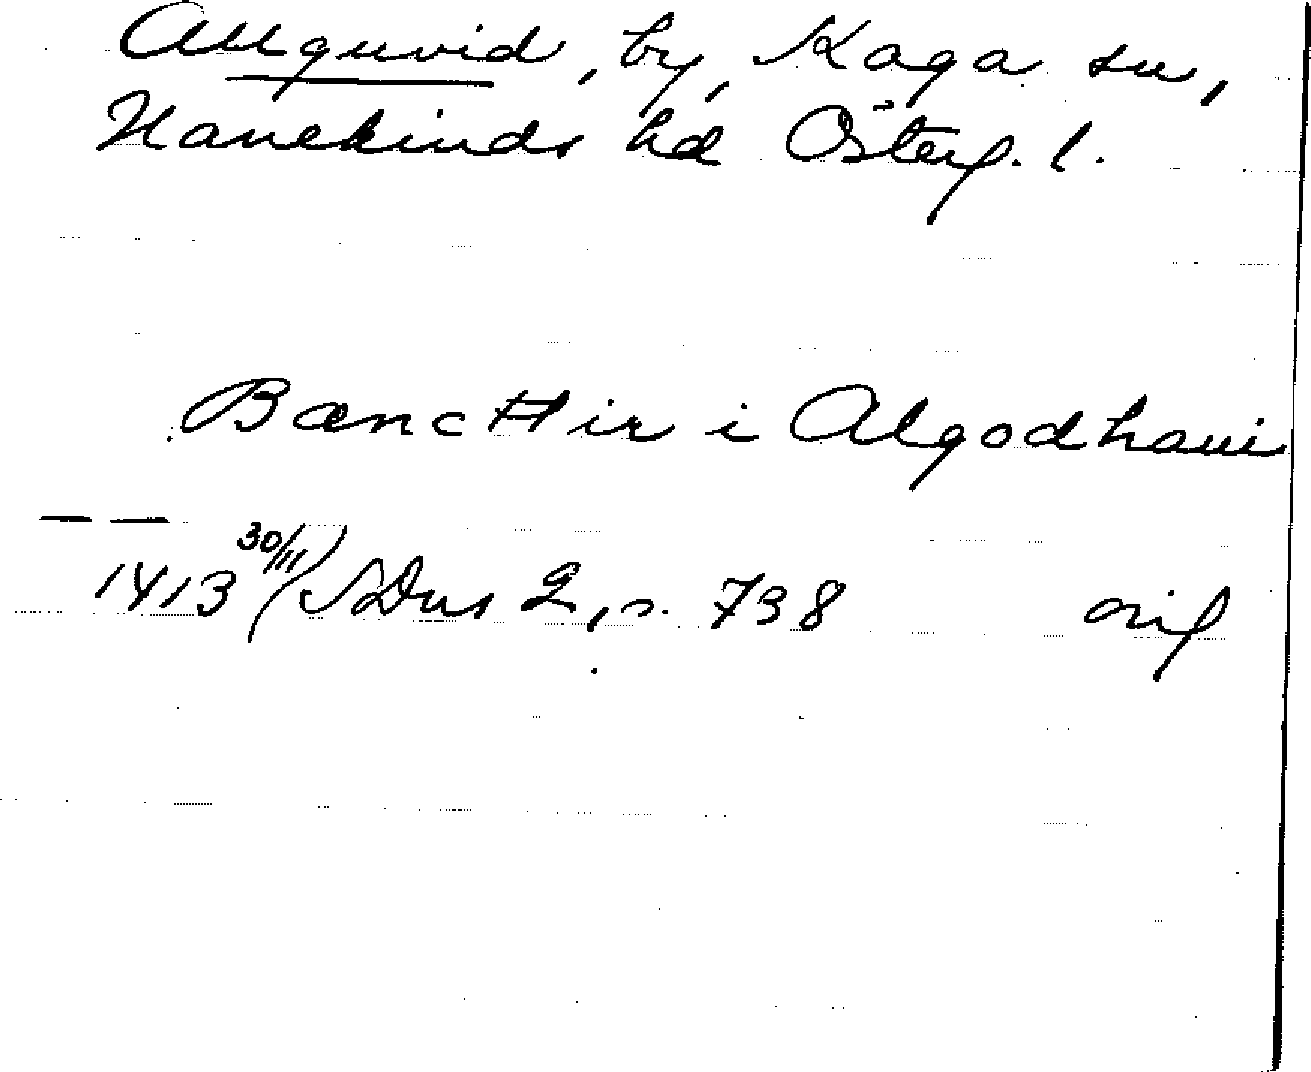 Allguvid, by, Kaga sn,
Hanekinds hd Österg. l.
Bænctkir i Algodhawi
— —
1413 30/11 (SDns 2, s. 738 orig